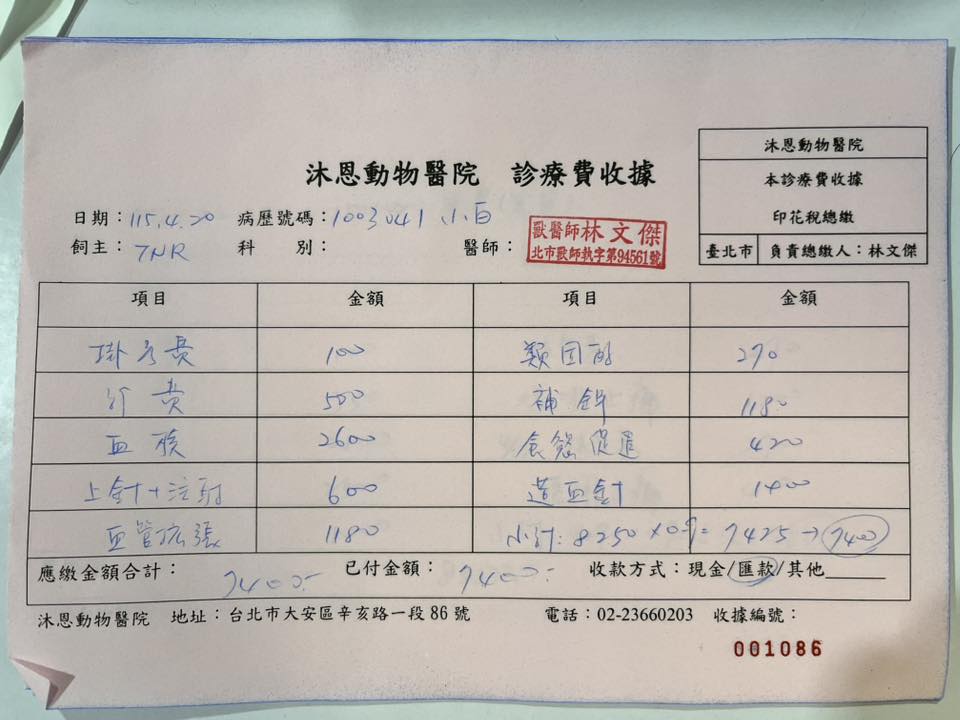 沐恩動物醫院 診療費收據
沐恩動物醫院
本診療費收據
印花稅總繳
臺北市 負責總繳人：林文傑
日期：115.4.20 病歷號碼：1003041 小白
飼主：TNR 科 別： 醫師：
獸醫師林文傑
北市獸師執字第94561號
項目 金額 項目 金額
掛号費 100 類固醇 270
診費 500 補鉀 1180
血檢 2600 食慾促進 420
上針+注射 600 造血針 1400
血管扩張 1180 小計：8250×0.9=7425→7400
應繳金額合計：7400.- 已付金額：7400.- 收款方式：現金/匯款/其他
沐恩動物醫院 地址：台北市大安區辛亥路一段86號 電話：02-23660203 收據編號：
001086